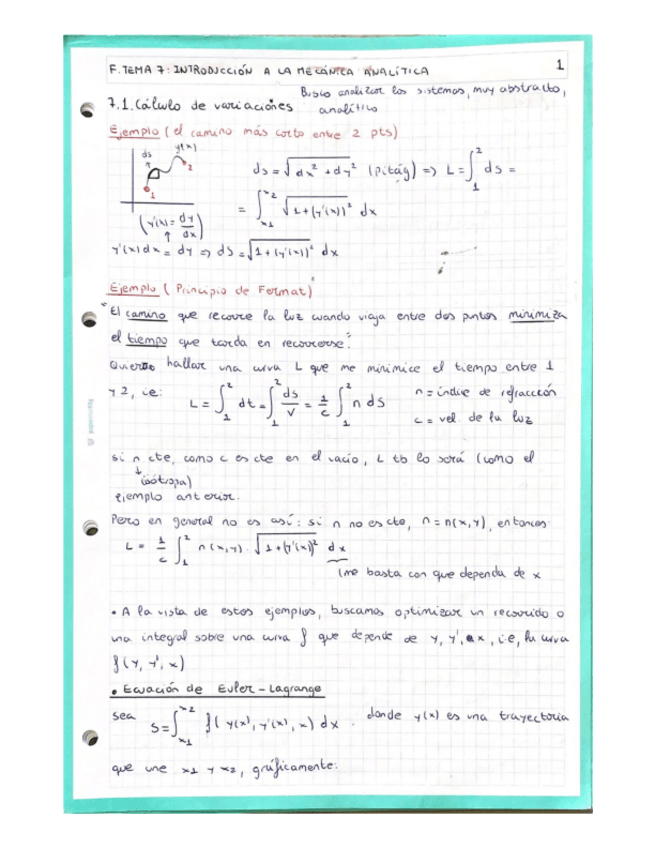 F. TEMA 7: INTRODUCCIÓN A LA MECÁNICA ANALÍTICA 1
Busco analizar los sistemas, muy abstracto,
7.1. Cálculo de variaciones analítico
Ejemplo (el camino más corto entre 2 pts)
ds y(x)
2
1
ds = √(dx² + dy²) (Pitág) => L = ∫₁² ds =
= ∫_{x1}^{x2} √(1+(y'(x))²) dx
(y'(x) = dy/dx)
y'(x) dx = dy => ds = √(1+(y'(x))²) dx
Ejemplo (Principio de Fermat)
"El camino que recorre la luz cuando viaja entre dos puntos minimiza
el tiempo que tarda en recorrerse".
Quiero hallar una curva L que me minimice el tiempo entre 1
y 2, ie: L = ∫₁² dt = ∫₁² ds/v = 1/c ∫₁² n ds n = índice de refracción
c = vel. de la luz
si n cte, como c es cte en el vacío, L tb lo será (como el
↓
isótropa)
ejemplo anterior.
Pero en general no es así: si n no es cte, n = n(x,y), entonces
L = 1/c ∫₁² n(x,y) · √(1+(y'(x))²) dx
(me basta con que dependa de x
• A la vista de estos ejemplos, buscamos optimizar un recorrido o
una integral sobre una curva f que depende de y, y', x, i.e, la curva
f(y, y', x)
• Ecuación de Euler-Lagrange
Sea S = ∫_{x1}^{x2} f(y(x), y'(x), x) dx. donde y(x) es una trayectoria
que une x1 y x2, gráficamente: